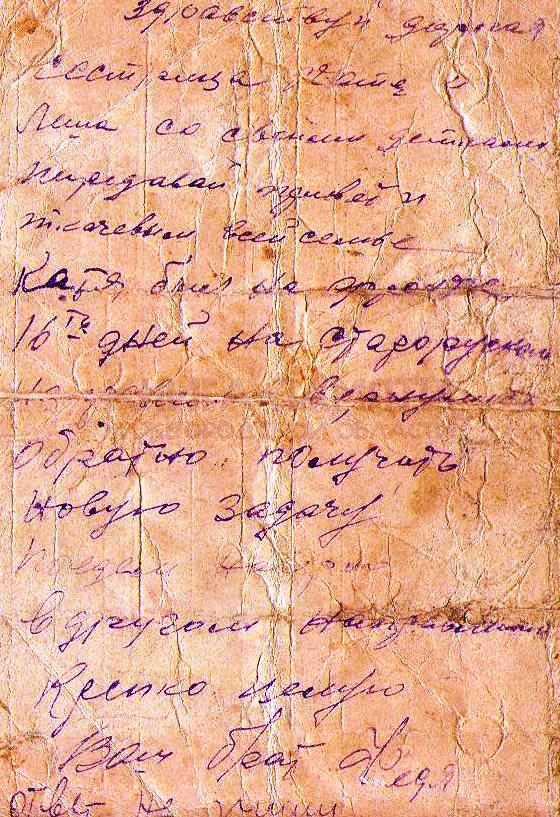 Здравствуй дорогая
сестрица Катя и
Лиша со своими детками
передавай привет
Ткачевым всей семье
Катя был на фронте
16ть дней на старорусском
направлении вернулись
обратно получать
новую задачу
поедем наверно
в другом направлении
Крепко целую
Ваш брат Федя
ответ не пиши